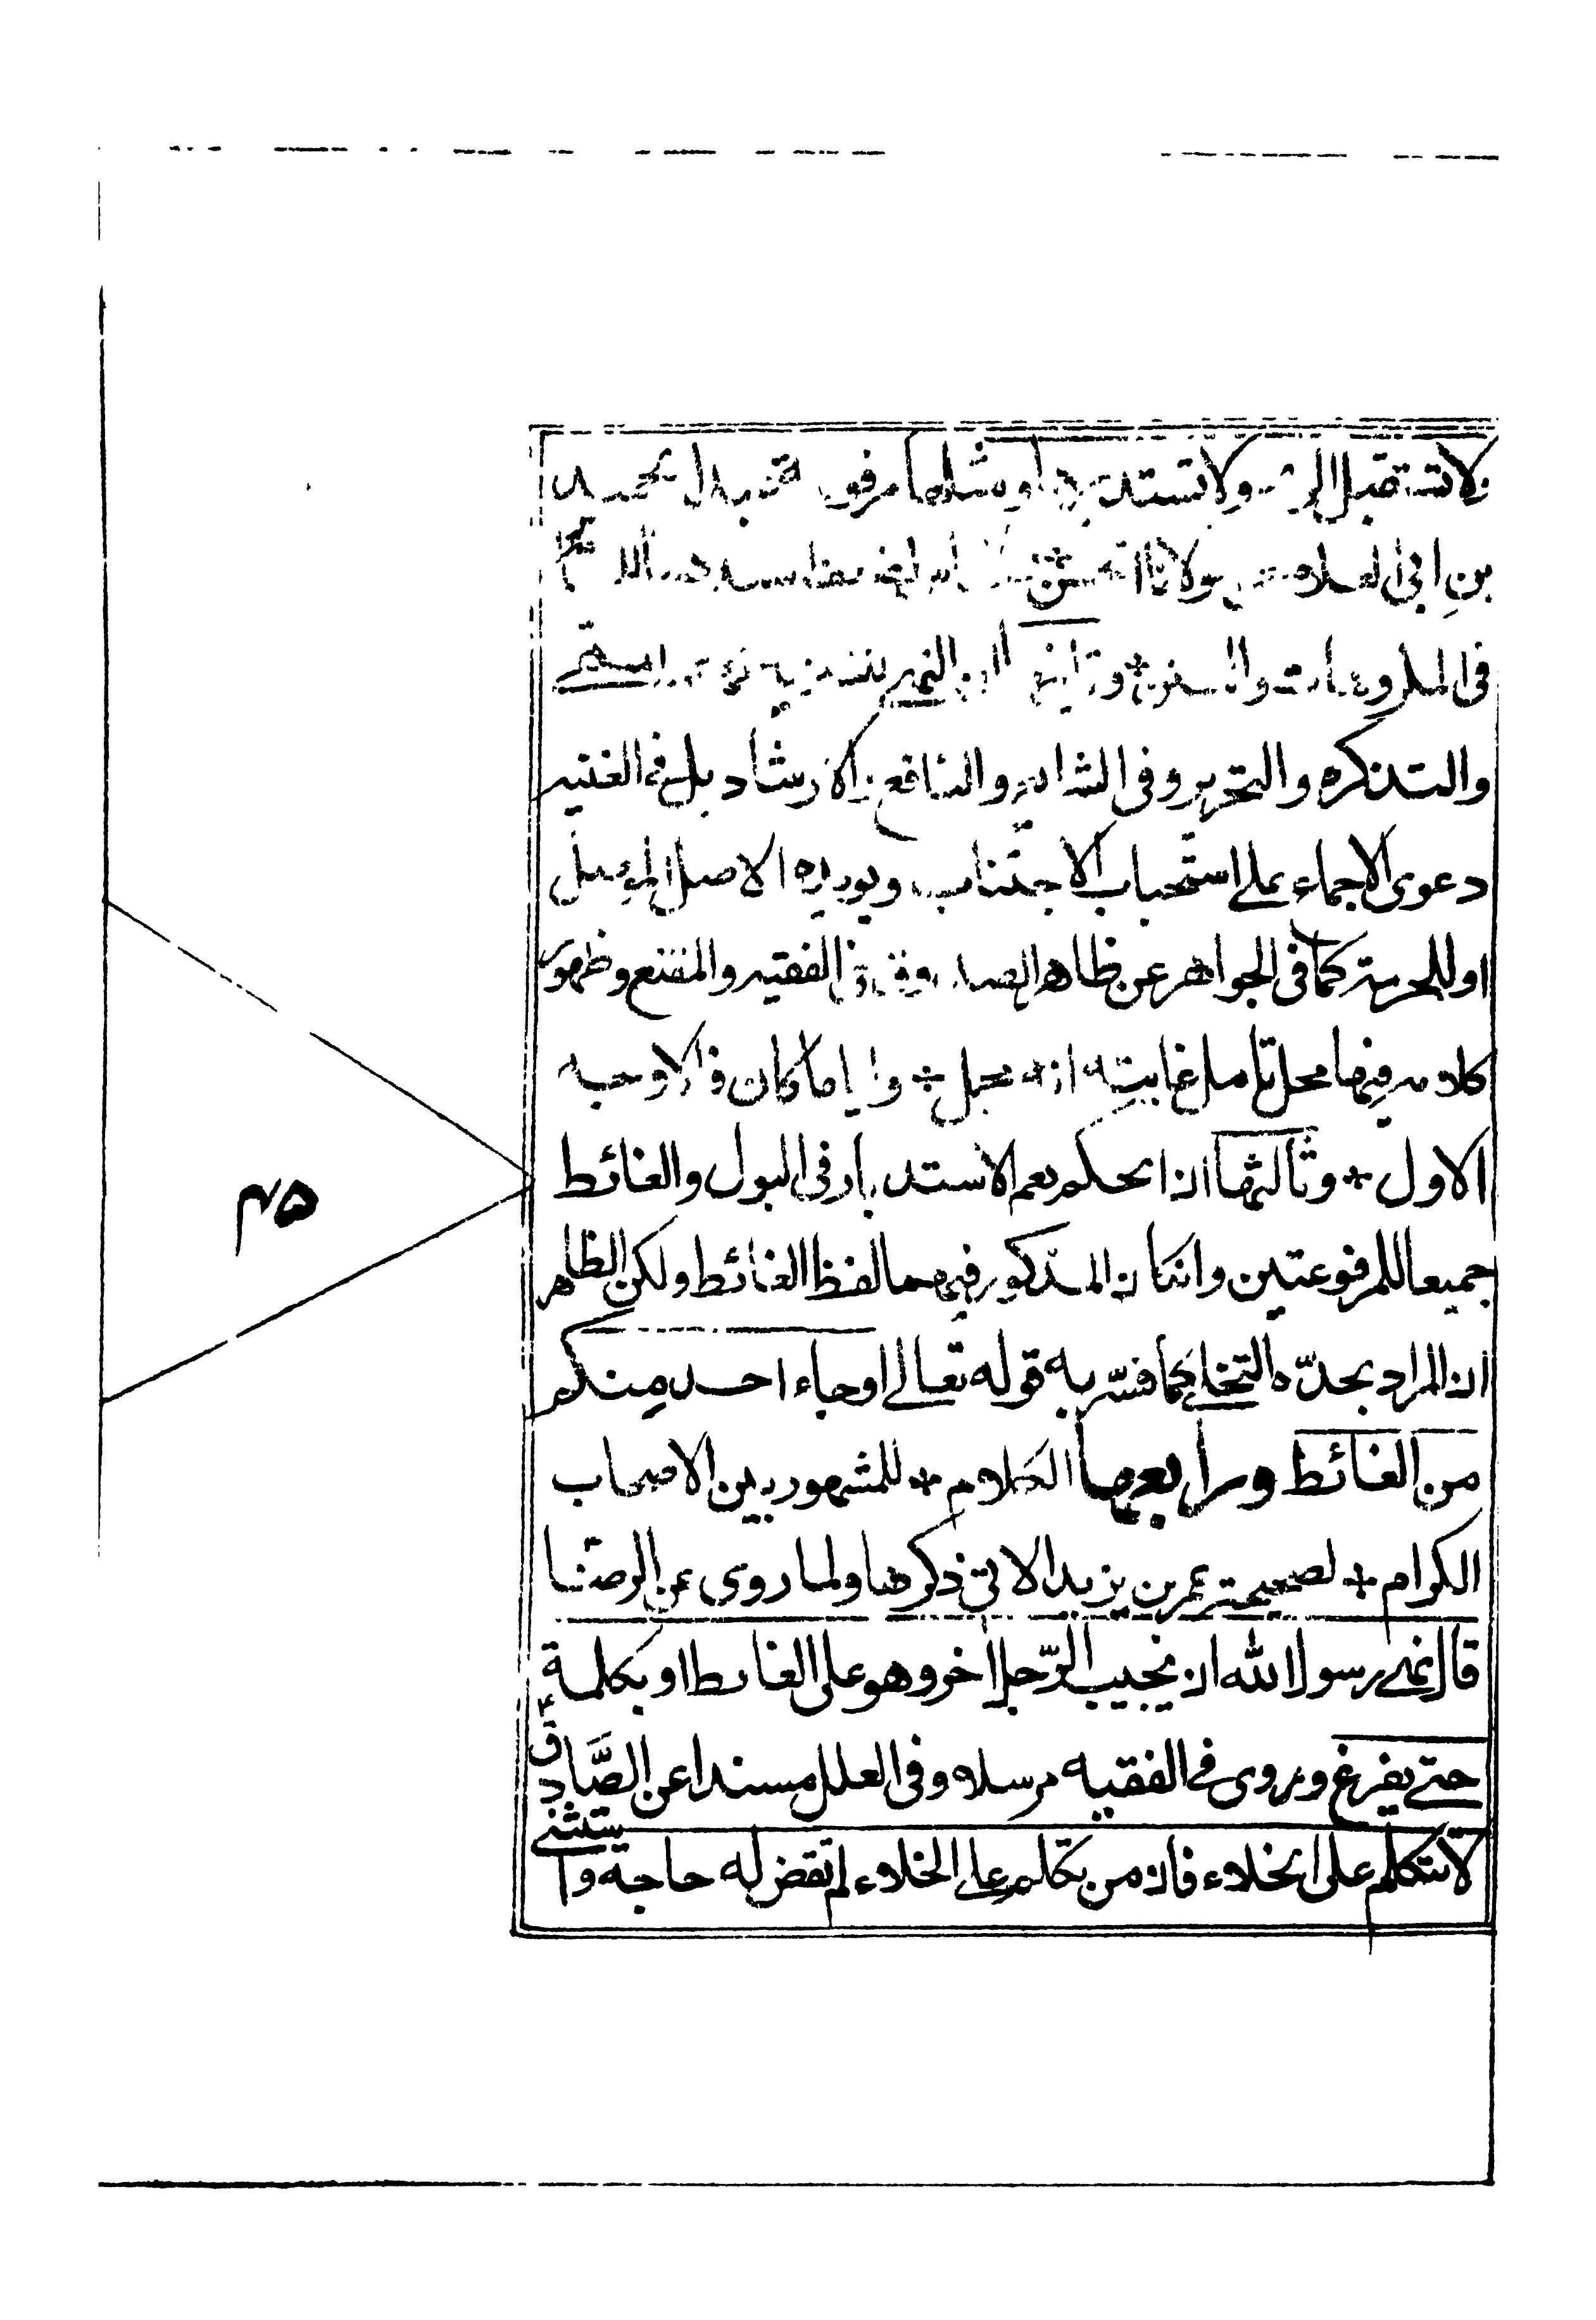 لا تستقبل الريح ولا تستدبرها ومثلها مرفوعة
بن ابى العلاء
فى المكروهات و
والتذكره والتحرير وفى الشرايع والنافع والارشاد بل فى الغنيه
دعوى الاجماع على استحباب الاجتناب ويؤيده الاصل
او للحرمة كما فى الجواهر عن ظاهر الصدوق فى الفقيه والمقنع وظهور
كلامه فيها محل تامل غايته انه مجمل وايا ما كان فالاوجه
الاول وثالثها ان الحكم يعم الاستدبار فى البول والغائط
جميعا للمرفوعتين وانكان المذكور فيهما لفظ الغائط ولكن الظاهر
ان المراد بحدّه التخلى كما فسّر به قوله تعالى او جاء احد منكم
من الغائط ورابعها الكلام للمشهور بين الاصحاب
الكرام لصحيحة عمر بن يزيد الاتى ذكرها ولما روى عن الرضا
قال نهى رسول الله ان يجيب الرّجل اخر وهو على الغائط او بكلمة
حتى يفرغ وروى فى الفقيه مرسلا وفى العلل مسندا عن الصَّادق
لا تتكلم على الخلاء فان من تكلم على الخلاء لم تقض له حاجة و يستثنى
۴۵